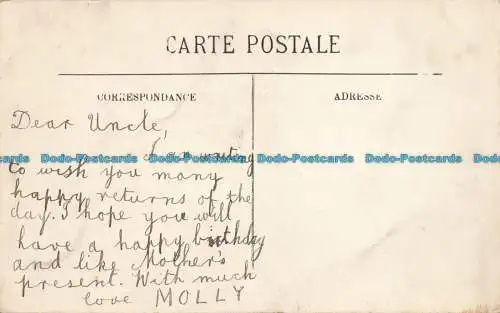 CARTE POSTALE
CORRESPONDANCE
ADRESSE
Dear Uncle,
I am writing
to wish you many
happy returns of the
day. I hope you will
have a happy birthday
and like Mother's
present. With much
love MOLLY
Dodo-Postcards Dodo-Postcards Dodo-Postcards Dodo-Postcards Dodo-Postcards Dodo-Postcards